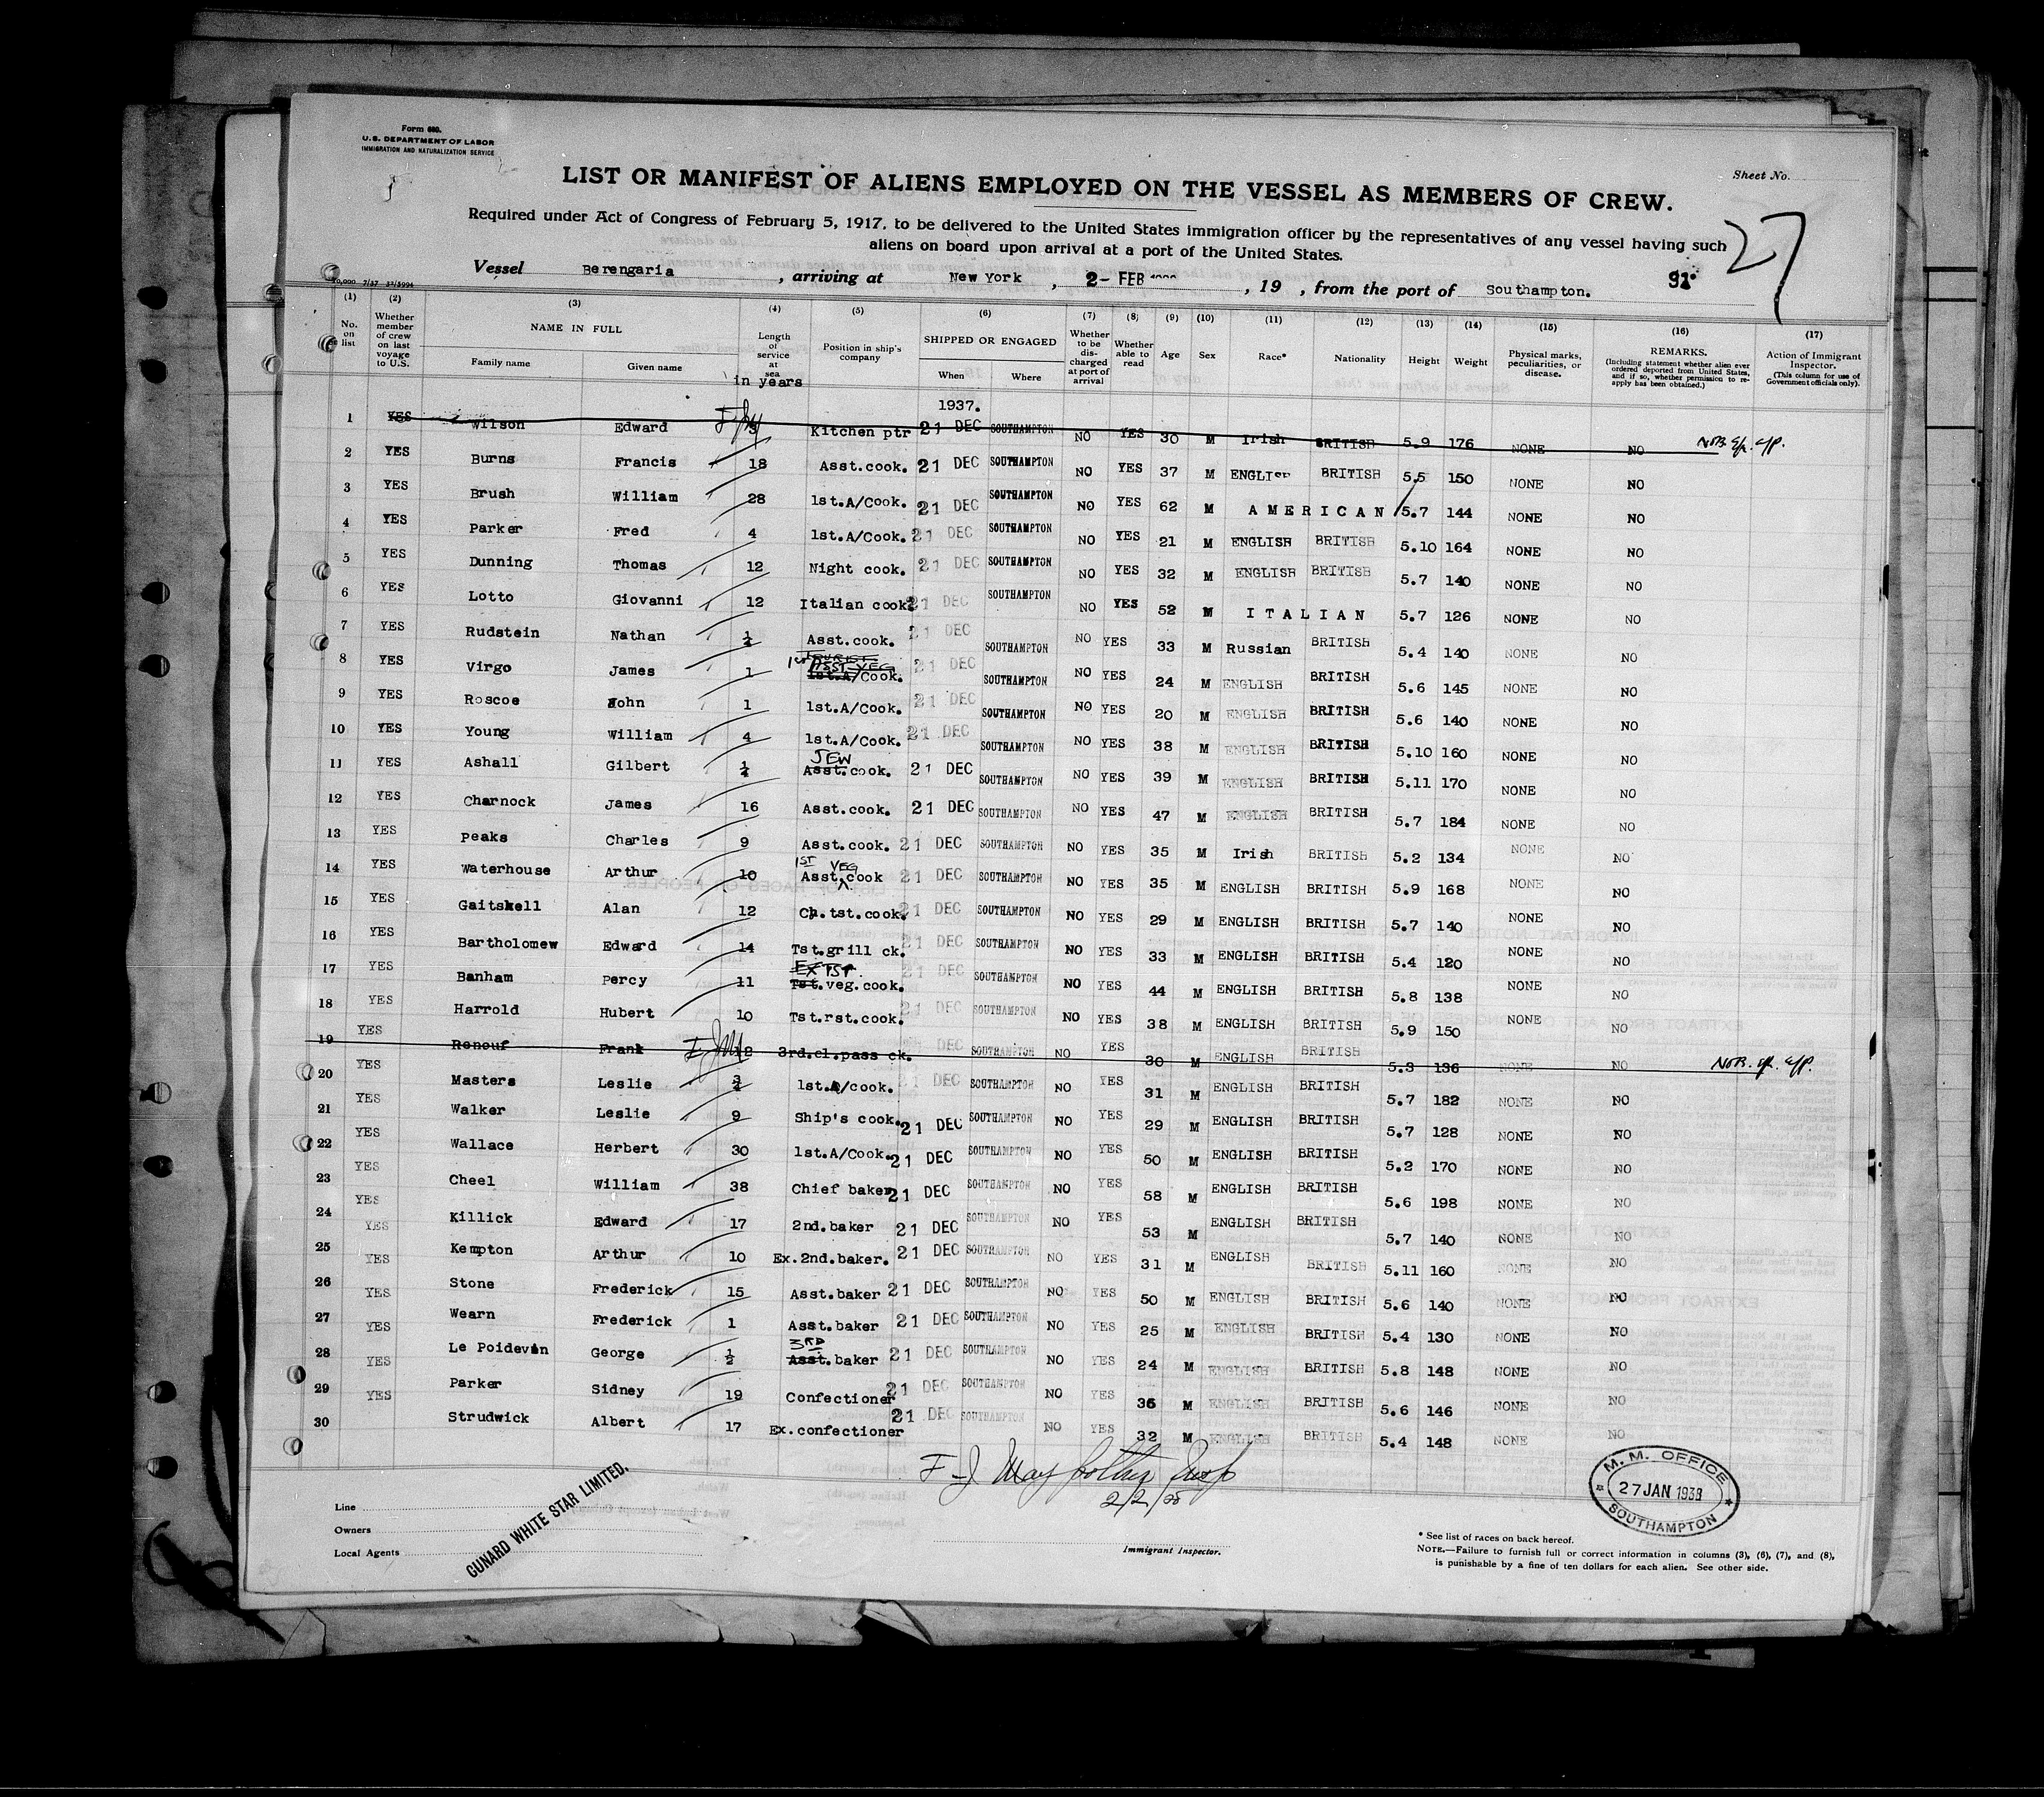 Form 680.
U.S. DEPARTMENT OF LABOR
IMMIGRATION AND NATURALIZATION SERVICE
Sheet No.
LIST OR MANIFEST OF ALIENS EMPLOYED ON THE VESSEL AS MEMBERS OF CREW.
27
Required under Act of Congress of February 5, 1917, to be delivered to the United States immigration officer by the representatives of any vessel having such
aliens on board upon arrival at a port of the United States.
Vessel Berengaria, arriving at New York, 2- FEB, 19 , from the port of Southampton. 91
(1) (2) (3) (4) (5) (6) (7) (8) (9) (10) (11) (12) (13) (14) (15) (16) (17)
No. on list Whether member of crew on last voyage to U.S. NAME IN FULL Family name Given name Length of service at sea in years Position in ship's company SHIPPED OR ENGAGED When Where Whether to be discharged at port of arrival Whether able to read Age Sex Race* Nationality Height Weight Physical marks, peculiarities, or disease. REMARKS. (Including statement whether alien ever ordered deported from United States, and if so, whether permission to re-apply has been obtained.) Action of Immigrant Inspector. (This column for use of Government officials only).
1937.
1 YES Wilson Edward 3 Kitchen ptr 21 DEC SOUTHAMPTON NO YES 30 M Irish BRITISH 5.9 176 NONE NO
2 YES Burns Francis 18 Asst.cook. 21 DEC SOUTHAMPTON NO YES 37 M ENGLISH BRITISH 5.5 150 NONE NO
3 YES Brush William 28 1st.A/Cook. 21 DEC SOUTHAMPTON NO YES 62 M AMERICAN 5.7 144 NONE NO
4 YES Parker Fred 4 1st.A/Cook. 21 DEC SOUTHAMPTON NO YES 21 M ENGLISH BRITISH 5.10 164 NONE NO
5 YES Dunning Thomas 12 Night cook. 21 DEC SOUTHAMPTON NO YES 32 M ENGLISH BRITISH 5.7 140 NONE NO
6 YES Lotto Giovanni 12 Italian cook. 21 DEC SOUTHAMPTON NO YES 52 M ITALIAN 5.7 126 NONE NO
7 YES Rudstein Nathan Asst.cook. 21 DEC SOUTHAMPTON NO YES 33 M Russian BRITISH 5.4 140 NONE NO
8 YES Virgo James 1 1st ASST VEG 1st.A/Cook. 21 DEC SOUTHAMPTON NO YES 24 M ENGLISH BRITISH 5.6 145 NONE NO
9 YES Roscoe John 1 1st.A/Cook. 21 DEC SOUTHAMPTON NO YES 20 M ENGLISH BRITISH 5.6 140 NONE NO
10 YES Young William 4 1st.A/Cook. 21 DEC SOUTHAMPTON NO YES 38 M ENGLISH BRITISH 5.10 160 NONE NO
11 YES Ashall Gilbert JEW Asst.cook. 21 DEC SOUTHAMPTON NO YES 39 M ENGLISH BRITISH 5.11 170 NONE NO
12 YES Charnock James 16 Asst.cook. 21 DEC SOUTHAMPTON NO YES 47 M ENGLISH BRITISH 5.7 184 NONE NO
13 YES Peaks Charles 9 Asst.cook. 21 DEC SOUTHAMPTON NO YES 35 M Irish BRITISH 5.2 134 NONE NO
14 YES Waterhouse Arthur 10 1ST Asst. VEG cook 21 DEC SOUTHAMPTON NO YES 35 M ENGLISH BRITISH 5.9 168 NONE NO
15 YES Gaitskell Alan 12 Ch.tst.cook. 21 DEC SOUTHAMPTON NO YES 29 M ENGLISH BRITISH 5.7 140 NONE NO
16 YES Bartholomew Edward 14 Tst.grill ck. 21 DEC SOUTHAMPTON NO YES 33 M ENGLISH BRITISH 5.4 120 NONE NO
17 YES Banham Percy 11 EX TST. Tst.veg.cook. 21 DEC SOUTHAMPTON NO YES 44 M ENGLISH BRITISH 5.8 138 NONE NO
18 YES Harrold Hubert 10 Tst.rst.cook. 21 DEC SOUTHAMPTON NO YES 38 M ENGLISH BRITISH 5.9 150 NONE NO
19 YES Renouf Frank 12 3rd.cl.pass ck. 21 DEC SOUTHAMPTON NO YES 30 M ENGLISH BRITISH 5.3 136 NONE NO
20 YES Masters Leslie 3/4 1st.A/cook. 21 DEC SOUTHAMPTON NO YES 31 M ENGLISH BRITISH 5.7 182 NONE NO
21 YES Walker Leslie 9 Ship's cook. 21 DEC SOUTHAMPTON NO YES 29 M ENGLISH BRITISH 5.7 128 NONE NO
22 YES Wallace Herbert 30 1st.A/Cook. 21 DEC SOUTHAMPTON NO YES 50 M ENGLISH BRITISH 5.2 170 NONE NO
23 YES Cheel William 38 Chief baker 21 DEC SOUTHAMPTON NO YES 58 M ENGLISH BRITISH 5.6 198 NONE NO
24 YES Killick Edward 17 2nd.baker 21 DEC SOUTHAMPTON NO YES 53 M ENGLISH BRITISH 5.7 140 NONE NO
25 YES Kempton Arthur 10 Ex.2nd.baker. 21 DEC SOUTHAMPTON NO YES 31 M ENGLISH BRITISH 5.11 160 NONE NO
26 YES Stone Frederick 15 Asst.baker 21 DEC SOUTHAMPTON NO YES 50 M ENGLISH BRITISH 5.6 140 NONE NO
27 YES Wearn Frederick 1 Asst.baker 21 DEC SOUTHAMPTON NO YES 25 M ENGLISH BRITISH 5.4 130 NONE NO
28 YES Le Poidevin George 1/2 3RD Asst.baker 21 DEC SOUTHAMPTON NO YES 24 M ENGLISH BRITISH 5.8 148 NONE NO
29 YES Parker Sidney 19 Confectioner 21 DEC SOUTHAMPTON NO YES 36 M ENGLISH BRITISH 5.6 146 NONE NO
30 Strudwick Albert 17 Ex.confectioner 21 DEC SOUTHAMPTON NO YES 32 M ENGLISH BRITISH 5.4 148 NONE NO
2/2/38
M.M. OFFICE
27 JAN 1938
SOUTHAMPTON
Line
Owners
Local Agents
CUNARD WHITE STAR LIMITED.
Immigrant Inspector.
* See list of races on back hereof.
NOTE.—Failure to furnish full or correct information in columns (3), (6), (7), and (8),
is punishable by a fine of ten dollars for each alien. See other side.